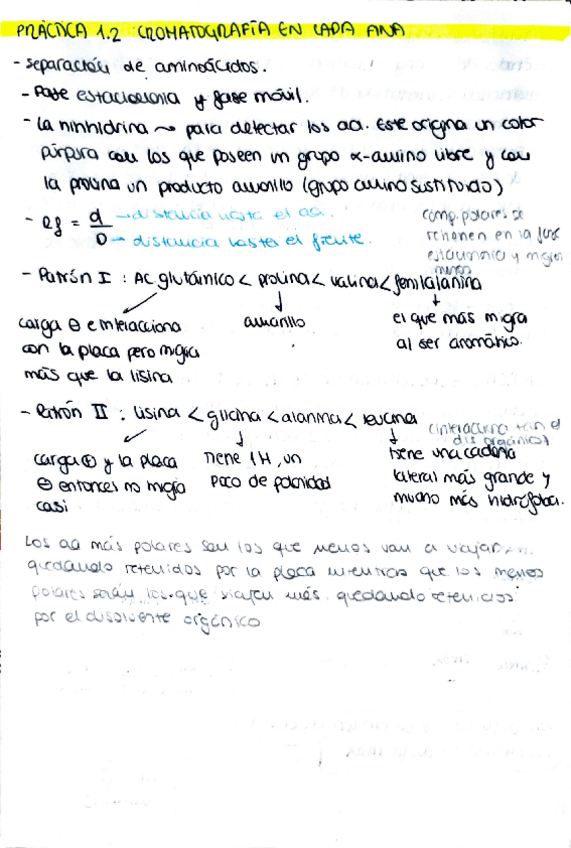 PRÁCTICA 1.2 CROMATOGRAFÍA EN CAPA FINA
- Separación de aminoácidos.
- Fase estacionaria y fase móvil.
- La ninhidrina ~> para detectar los aa. Este origina un color
púrpura con los que poseen un grupo α-amino libre y con
la prolina un producto amarillo (grupo amino sustituido)
- Rf = d → distancia hasta el aa.
D → distancia hasta el frente.
comp. polares se
retienen en la fase
estacionaria y migran
menos
- Patrón I : Ac glutámico < prolina < valina < fenilalanina
carga ⊖ e interacciona
con la placa pero migra
más que la lisina
amarillo
el que más migra
al ser aromático.
- Patrón II : lisina < glicina < alanina < leucina
(interacciona con el
dis orgánico)
carga ⊕ y la placa
⊖ entonces no migra
casi
Tiene 1H, un
poco de polaridad
tiene una cadena
lateral más grande y
mucho más hidrófoba.
Los aa más polares son los que menos van a viajar
quedando retenidos por la placa mientras que los menos
polares serán los que viajen más quedando retenidos
por el disolvente orgánico